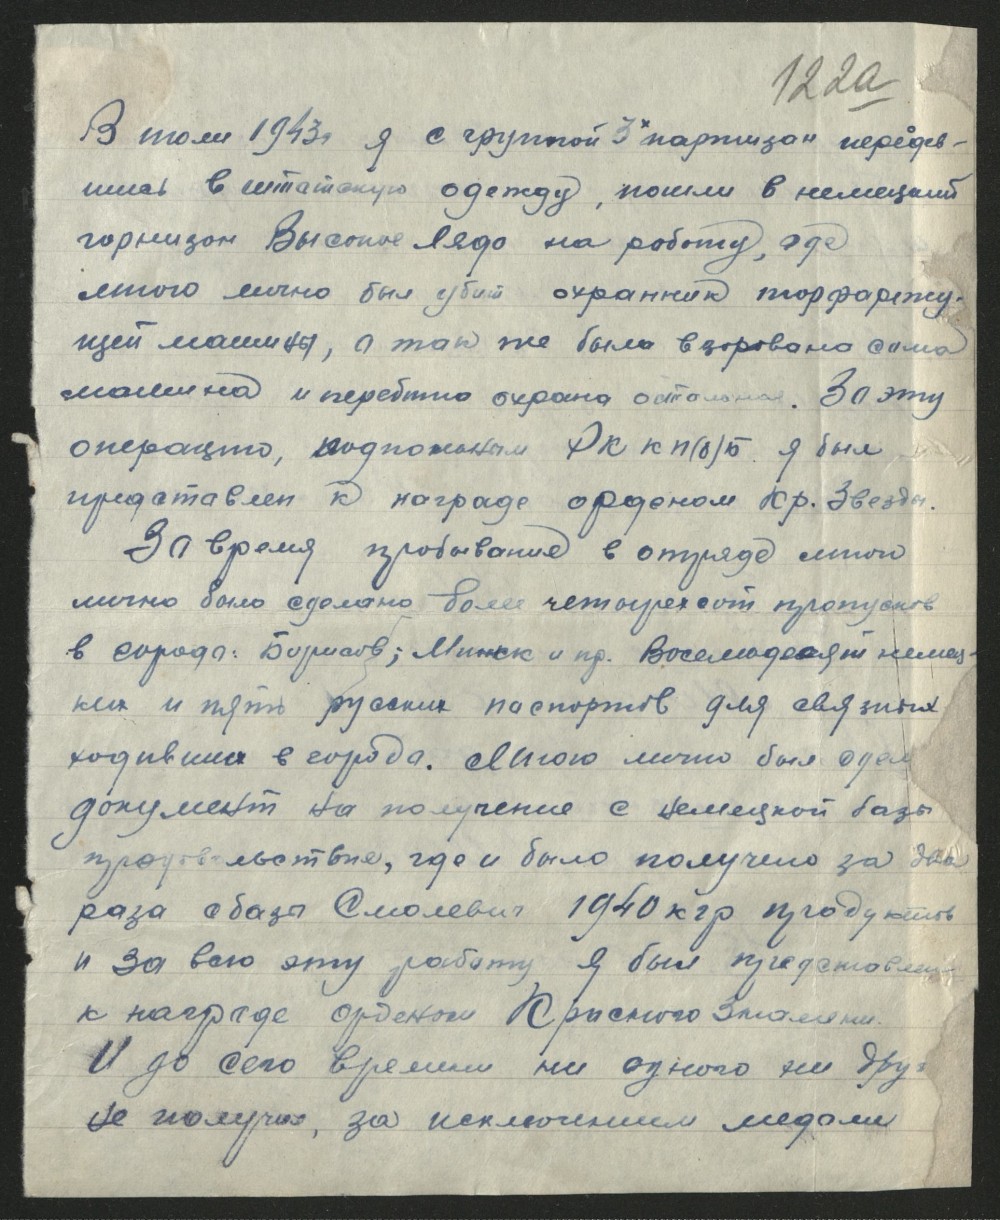 122а
В июле 1943г я с группой 3х партизан передев-
шись в штатскую одежду, пошли в немецкий
гарнизон Высокое Лядо на работу, где
мною лично был убит охранник торфарежу-
щей машины, а так же была взорвана сама
машина и перебита охрана остальная. За эту
операцию, подпольным РК КП(б)Б я был
представлен к награде орденом Кр. Звезды.
За время пробывание в отряде мною
лично было сделано более четырехсот пропусков
в города: Борисов; Минск и пр. Восемьдесят немец-
ких и пять русских паспортов для связных
ходивших в города. Мною лично был сдел
документ на получение с немецкой базы
продовольствие, где и было получено за два
раза с базы Смолевич 1940 кгр продуктов
и за всю эту работу я был представлен
к награде орденом Красного Знамени.
И до сего времени ни одного ни друг
не получил, за исключением медали